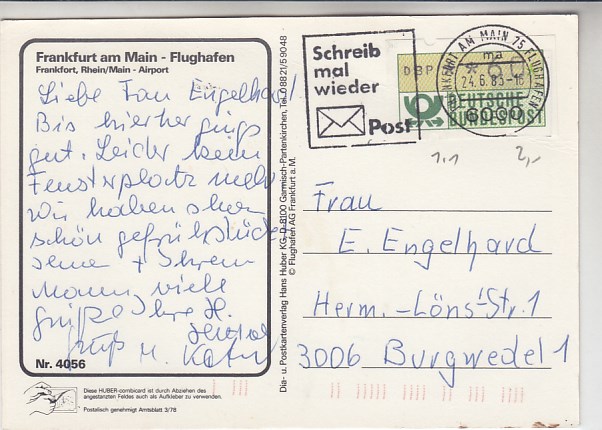 Frankfurt am Main - Flughafen
Frankfurt, Rhein/Main - Airport
Liebe Frau Engelhard!
Bis hierher ging's
gut. Leider kein
Fensterplatz mehr
Wir haben schon
schön gefrühstückt
Ihrem
Mann, viele
Grüße Ihre H.
Gruß
Nr. 4056
Diese HUBER-combicard ist durch Abziehen des
angestanzten Feldes auch als Aufkleber zu verwenden.
Postalisch genehmigt Amtsblatt 3/78
Dia- u. Postkartenverlag Hans Huber KG-D-8100 Garmisch-Partenkirchen, Tel. 08821/59048
© Flughafen AG Frankfurt a. M.
Schreib
mal
wieder
Post
FRANKFURT AM MAIN 75 FLUGHAFEN
ma
24.6.85-16
6000
DBP
DEUTSCHE
BUNDESPOST
1,1 2,-
Frau
E. Engelhard
Herm.-Löns-Str. 1
3006 Burgwedel 1